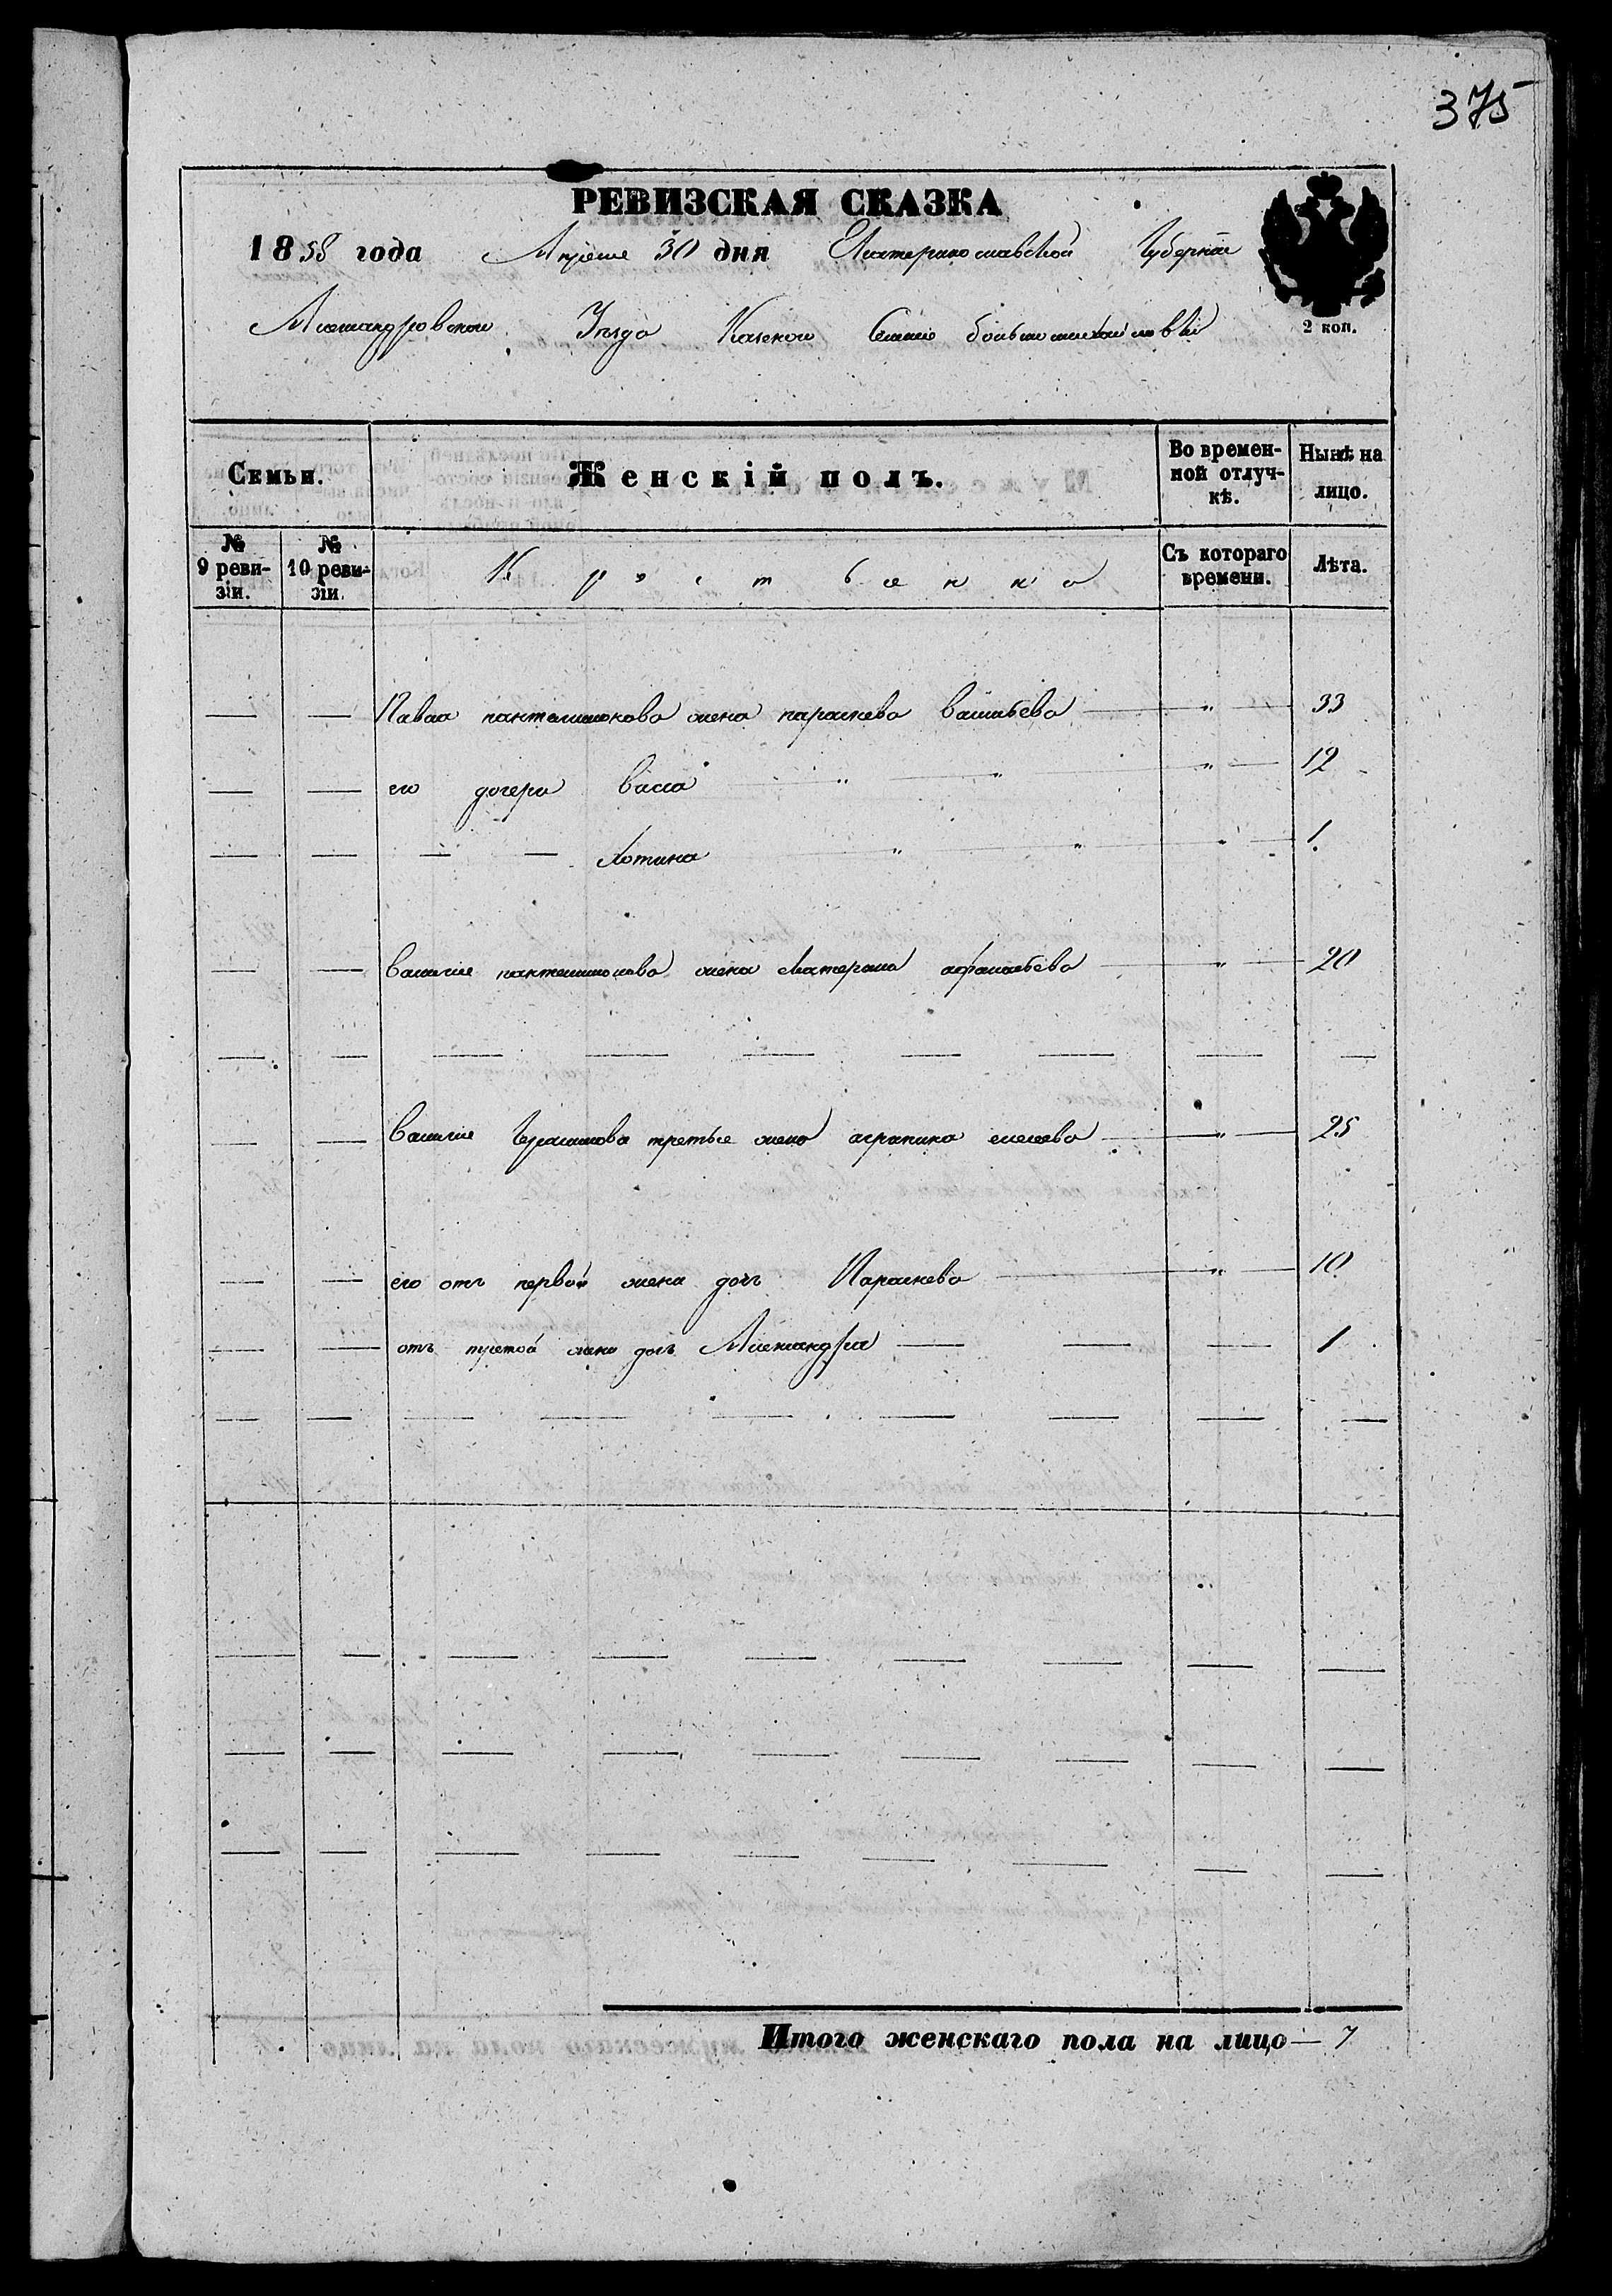 375
РЕВИЗСКАЯ СКАЗКА
1858 года Апреля 30 дня Екатеринославской Губернии
Александровского Уезда Казенного Селения большемихайловки
2 коп.
Семьи. Женскій полъ. Во временной отлучкѣ. Нынѣ на лицо.
№ 9 ревизіи. № 10 ревизіи. Крестьянки Съ котораго времени. Лѣта.
Павла пантелимонова жена параскева васильева — „ — 33
его дочери васса „ „ „ — 12
— — Хотина „ „ „ 1.
василия пантелимонова жена екатерина афанасьева — „ — 20
василия Герасимова третье жена агрипина елесева — „ — 25
его отъ первой жены дочь Параскева — „ — 10
отъ третой жены дочь Александра — — — 1
Итого женскаго пола на лицо — 7